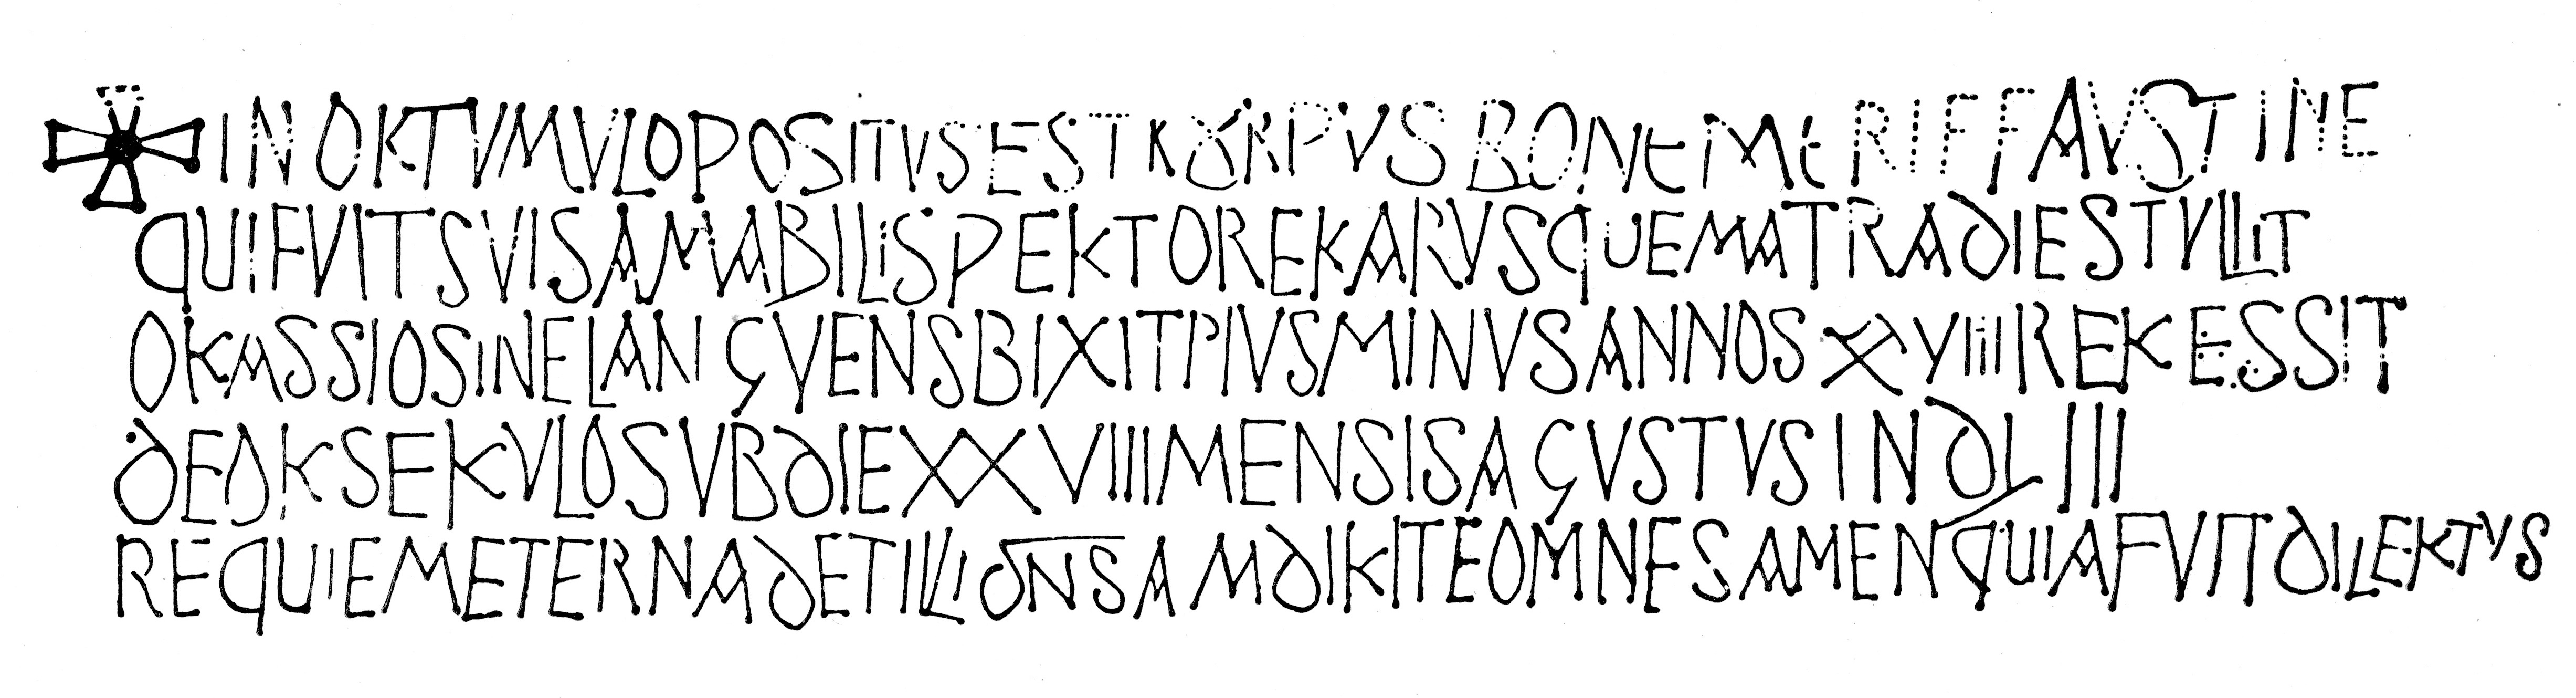 ✠ IN OK TVMVLO POSITVS EST KORPVS BONE MERI FFAVSTINE
QUI FVIT SVIS AMABILIS PEKTORE KARVS QUEM ATRA DIES TVLLIT
OKASSIO SINE LANGVENS BIXIT PIVS MINVS ANNOS XVIII REKESSIT
DE OK SEKVLO SVB DIE XXVIII MENSIS AGVSTVS IND III
REQUIEM ETERNA DET ILLI DNS AM DIKITE OMNES AMEN QUIA FVIT DILEKTVS